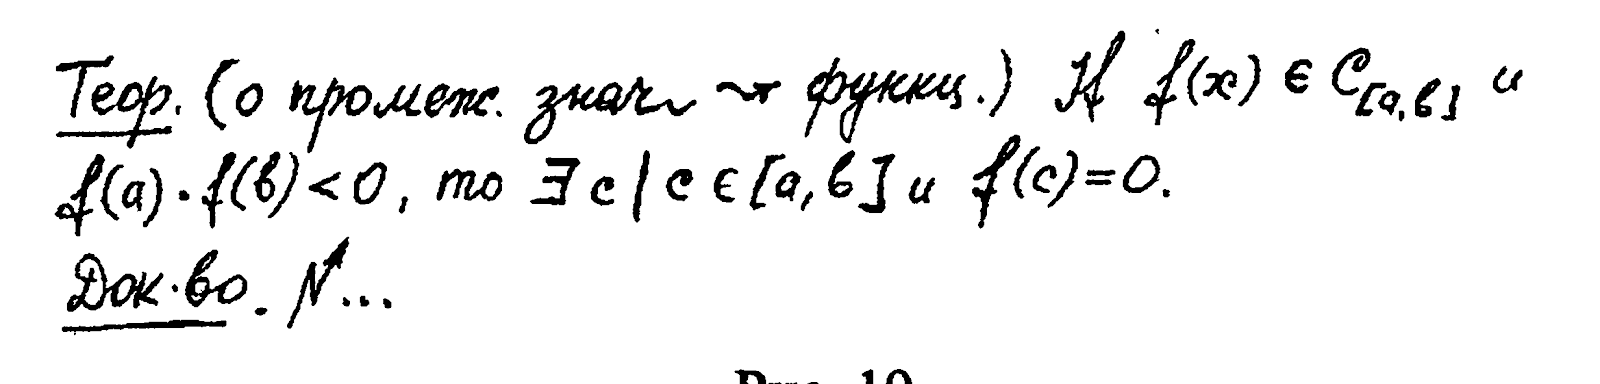 Теор. (о промеж. знач. ⤳ функц.) If f(x) ∈ C[a,b] и
f(a)·f(b)<0, то ∃ c | c ∈ [a,b] и f(c)=0.
Док-во. N...